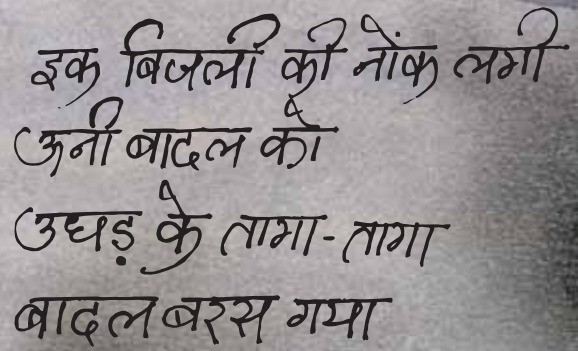 इक बिजली की नोंक लगी
ऊनी बादल को
उधड़ के तागा-तागा
बादल बरस गया